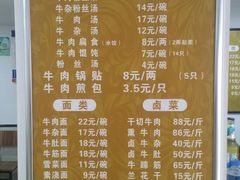 牛杂粉丝汤 14元/碗
牛肉汤 17元/碗
牛杂汤 17元/碗
牛肉扁食(水饺) 8元/两(2两起卖)
牛肉馄饨 7元/碗(14只)
牛肉锅贴 8元/两(5只)
牛肉煎包 3.5元/只
面类 卤菜
牛肉面 22元/碗 干切牛肉 88元/斤
牛杂面 19元/碗 熏牛肉 85元/斤
牛肚面 19元/碗 卤牛杂 60元/斤
牛筋面 19元/碗 卤牛肚 65元/斤
雪菜面 11元/碗 牛蹄筋 65元/斤
素浇面 9元/碗 兰花干